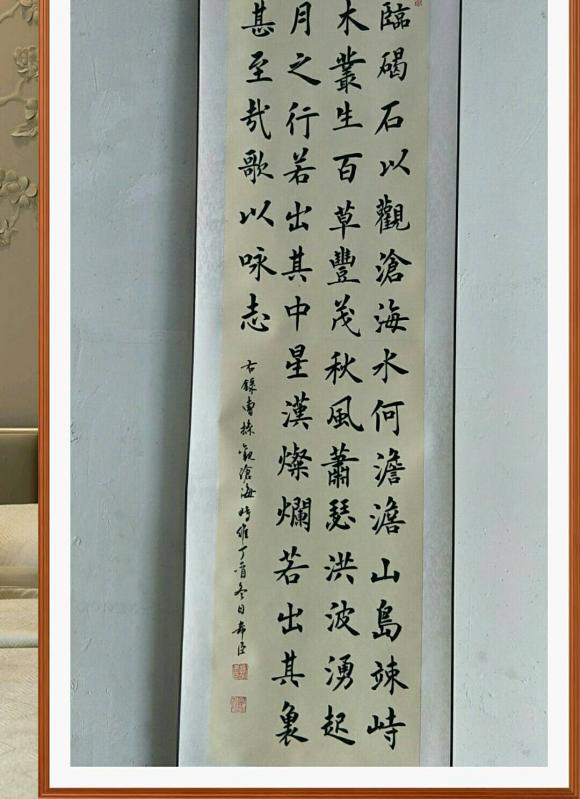 臨碣石以觀滄海水何澹澹山島竦峙
木叢生百草豐茂秋風蕭瑟洪波湧起
月之行若出其中星漢燦爛若出其裏
甚至哉歌以咏志
右錄曹操觀滄海時維丁酉冬日希臣